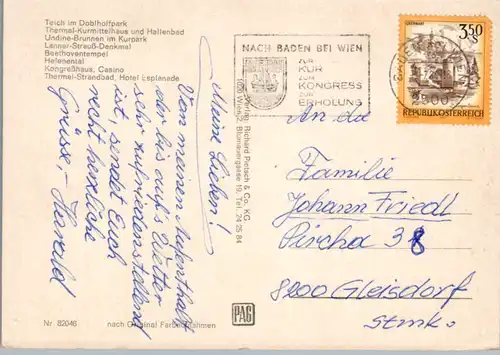 Teich im Doblhoffpark
Thermal-Kurmittelhaus und Hallenbad
Undine-Brunnen im Kurpark
Lanner-Strauß-Denkmal
Beethoventempel
Helenental
Kongreßhaus, Casino
Thermal-Strandbad, Hotel Esplanade
Meine Lieben!
Von meinen Aufenthalt
der bis aufs Wetter
sehr zufriedenstellend
ist, sendet Euch
recht herzliche
Grüsse
Verlag: Richard Pietsch & Co. KG.
Wien 2, Blumauergasse 19, Tel. 24 25 84
NACH BADEN BEI WIEN
ZUR
KUR
ZUM
KONGRESS
ZUR
ERHOLUNG
3.50
REPUBLIK ÖSTERREICH
2500
An die
Familie
Johann Friedl
Pircha 38
8200 Gleisdorf
Stmk.
Nr 82046
nach Original Farbaufnahmen
PAG